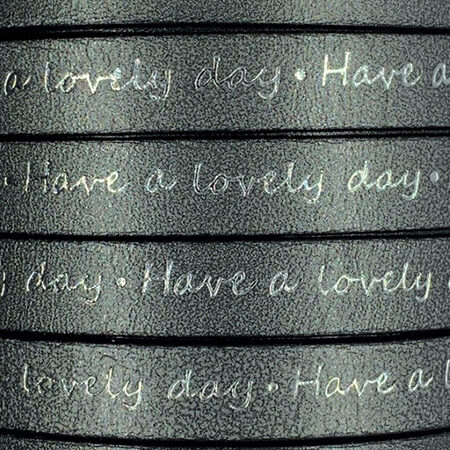 a lovely day • Have a
• Have a lovely day •
y day • Have a lovely
lovely day • Have a l